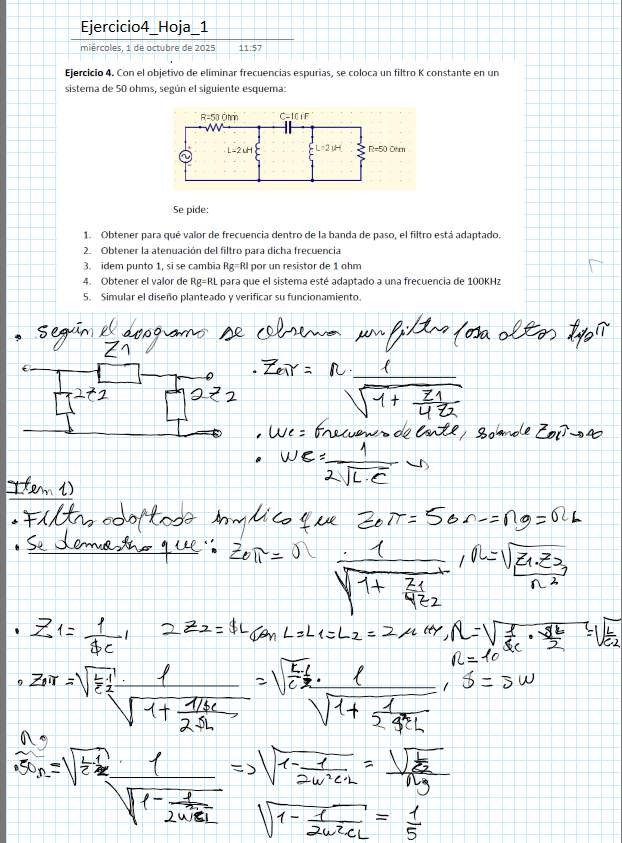 Ejercicio4_Hoja_1
miércoles, 1 de octubre de 2025 11:57
Ejercicio 4. Con el objetivo de eliminar frecuencias espurias, se coloca un filtro K constante en un
sistema de 50 ohms, según el siguiente esquema:
R=50 Ohm C=10 nF
L=2 uH L=2 uH R=50 Ohm
Se pide:
1. Obtener para qué valor de frecuencia dentro de la banda de paso, el filtro está adaptado.
2. Obtener la atenuación del filtro para dicha frecuencia
3. idem punto 1, si se cambia Rg=Rl por un resistor de 1 ohm
4. Obtener el valor de Rg=RL para que el sistema esté adaptado a una frecuencia de 100KHz
5. Simular el diseño planteado y verificar su funcionamiento.
• según el diagrama se observa un filtro pasa altos tipo π
Z1
2Z2 2Z2
• Z0π = R · 1 / √(1 + Z1/4Z2)
• Wc = Frecuencia de corte, donde Z0π → ∞
• Wc = 1 / 2√L·C
Item 1)
• Filtro adaptado implica que Z0π = 50Ω = Rg = RL
• Se demuestra que: Z0π = R · 1 / √(1 + Z1/4Z2) , R = √Z1·Z2
R²
• Z1 = 1/$C , 2Z2 = $L con L = L1 = L2 = 2μHy, R = √(1/$C · $L/2) = √(L/C2)
R = 10
• Z0π = √(L/C · 1/2) · 1 / √(1 + 1/$C / 2$L) = √(L/C · 1/2) · 1 / √(1 + 1 / 2$²CL) , $ = JW
Rg
50Ω = √(L/C · 1/2) · 1 / √(1 - 1 / 2W²CL) => √(1 - 1 / 2W²C·L) = √(L/C2) / Rg
√(1 - 1 / 2W²CL) = 1/5